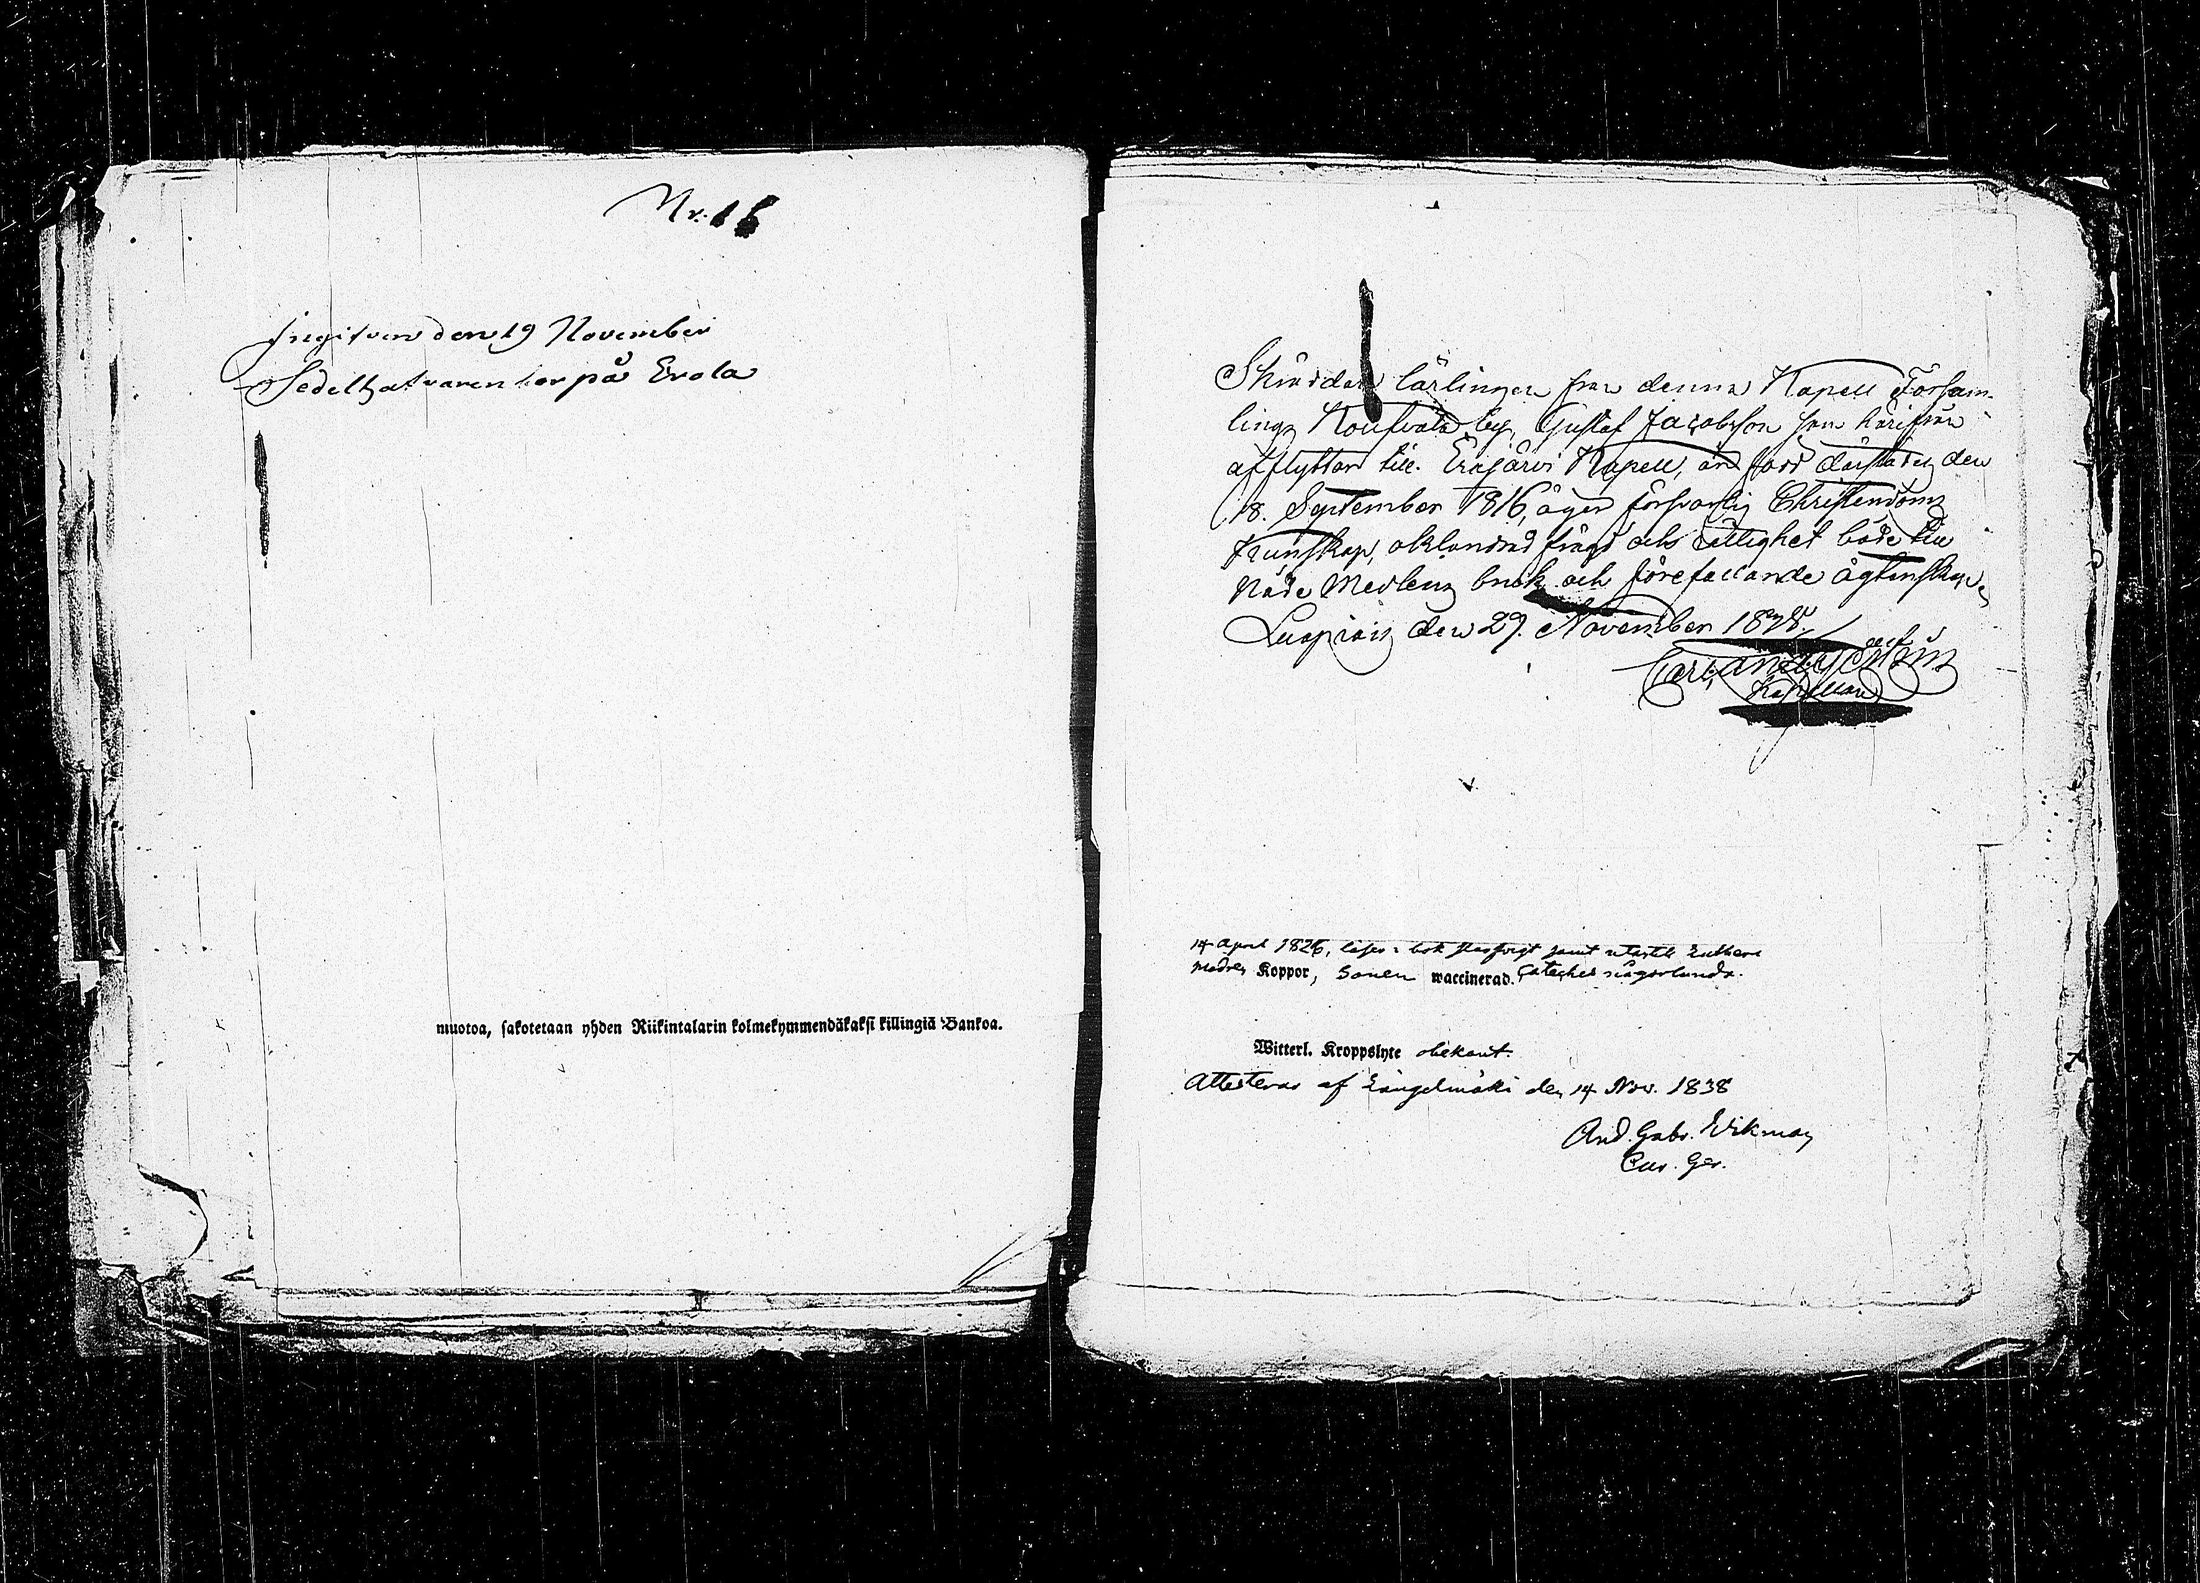 Nr. 16
Ingifven den 19 November
Sedelhafvaren bor på Erola
muotoa, sakotetaan yhden Riikintalarin kolmekymmendäkaksi killingiä Bankoa.
Skräddare lärlingen från denna Kapell Församlings
by, Gustaf Jacobsson som härifrån
afflyttar till Eräjärvi Kapell, är född därstädes den
18. September 1816, äger försvarlig Christendoms
Kunskap, oklandrad frägd och rättighet både till
Nåde Medlens bruk och förefallande ägtenskap,
Luopiois den 29. November 1838.
Kapellan
14 April 1826, läser i bok samt utantill Lutheri
Modren Koppor, Sonen waccinerad. Cateches någorlunda.
Witterl. Kroppslyte obekant.
Attesteras af Längelmäki den 14 Nov. 1838
And. Gabr. Wikman
Cur. Ger.